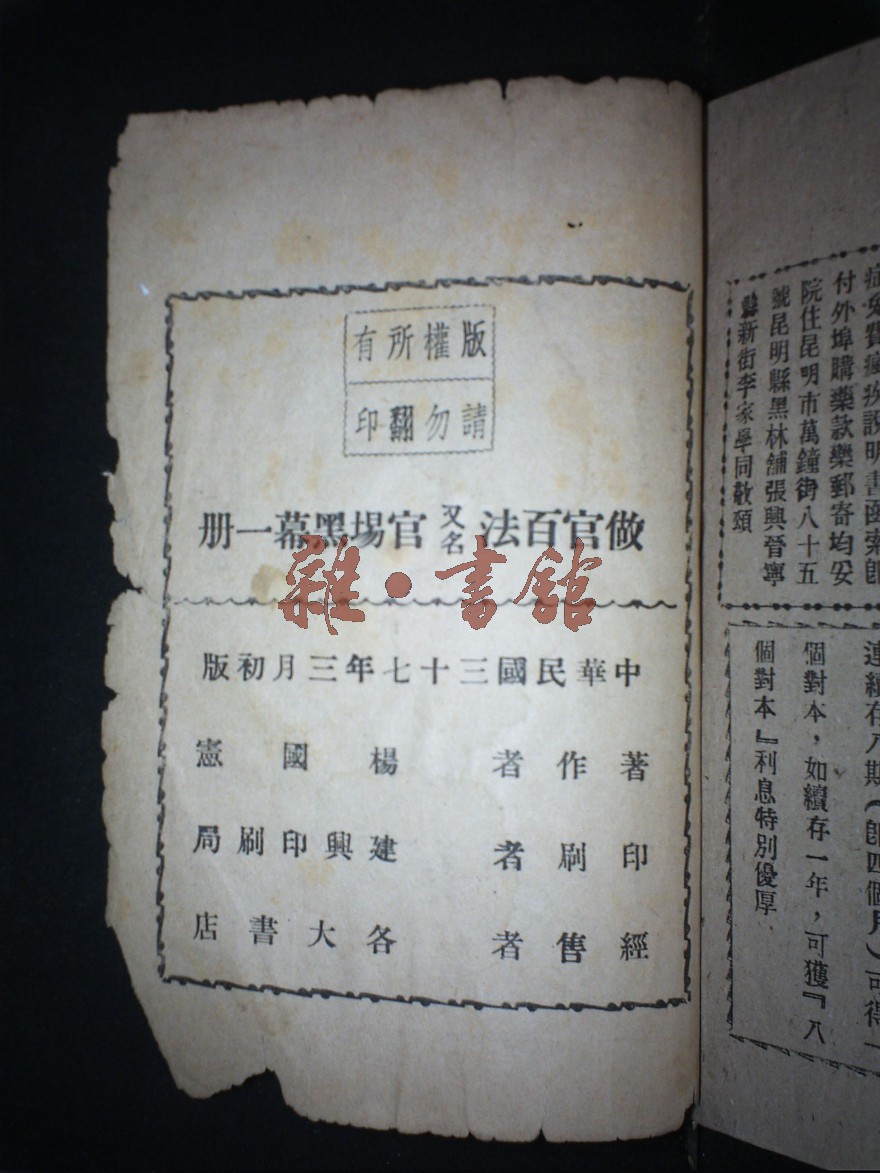 症免費瘧疾說明書函索卽
付外埠購藥款藥郵寄均妥
院住昆明市萬鐘街八十五
號昆明縣黑林舖張興晉寧
縣新街李家學同敬頌
連續存八期(卽四個月)可得一
個對本，如續存一年，可獲『八
個對本』利息特別優厚
版權所有
請勿翻印
做官百法又名官埸黑幕一册
雜·書館
中華民國三十七年三月初版
著作者 楊國憲
印刷者 建興印刷局
經售者 各大書店